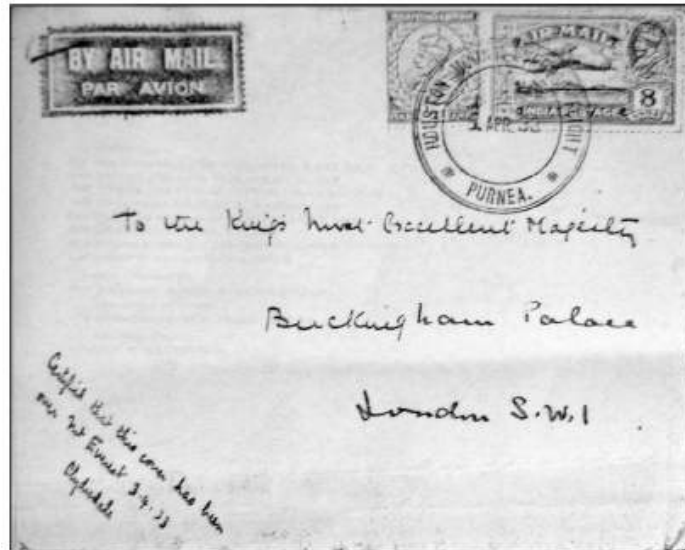 BY AIR MAIL
PAR AVION
AIR MAIL
INDIA POSTAGE
8
HOUSTON
FLIGHT
1 APR. 33
PURNEA.
To the King's Most Excellent Majesty
Buckingham Palace
London S.W.1
Certified that this cover has been
over Mt Everest 3.4.33
Clydesdale